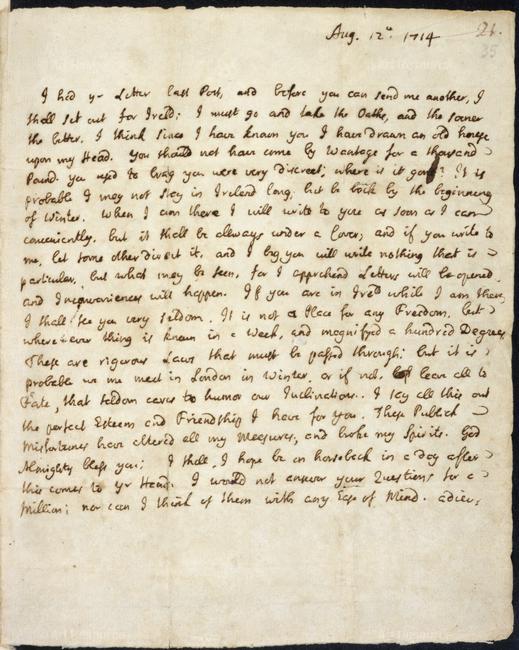 Aug. 12th 1714
21.
35
I had yr Letter last Post, and before you can send me another, I
shall set out for Ireld: I must go and take the Oaths, and the sooner
the better. I think since I have known you I have drawn an old house
upon my Head. You should not have come by Wantage for a thousand
Pound. you used to brag you were very Discreet; where is it gone? It is
probable I may not stay in Ireland long, but be back by the beginning
of Winter. When I am there I will write to you as soon as I can
conveniently, but it shall be allways under a Cover; and if you write to
me, let some other direct it, and I beg you will write nothing that is
particular, but what may be seen, for I apprehend Letters will be opened
and Inconveniences will happen. If you are in Ireld while I am there
I shall see you very seldom. It is not a Place for any Freedom, but
where ever thing is known in a Week, and magnifyed a hundred Degrees
These are rigorous Laws that must be passed through: but it is
probable we me meet in London in Winter, or if not, leave all to
Fate, that seldom cares to humor our Inclinations. I say all this out
the perfect Esteem and Friendship I have for you. These Publick
Misfortunes have altered all my Measures, and broke my Spirits. God
Almighty bless you; I shall, I hope be on horseback in a day after
this comes to yr Hand. I would not answer your Questions for a
Million; nor can I think of them with any Ease of Mind. adieu,